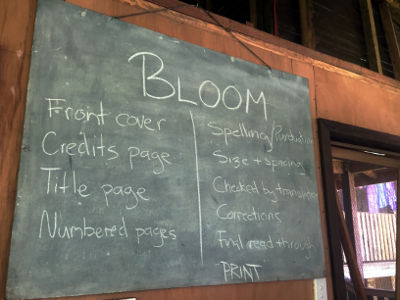 BLOOM
Front cover
Credits page
Title page
Numbered pages
Spelling/Punctuation
Size + spacing
Checked by translator
Corrections
Final read through
PRINT